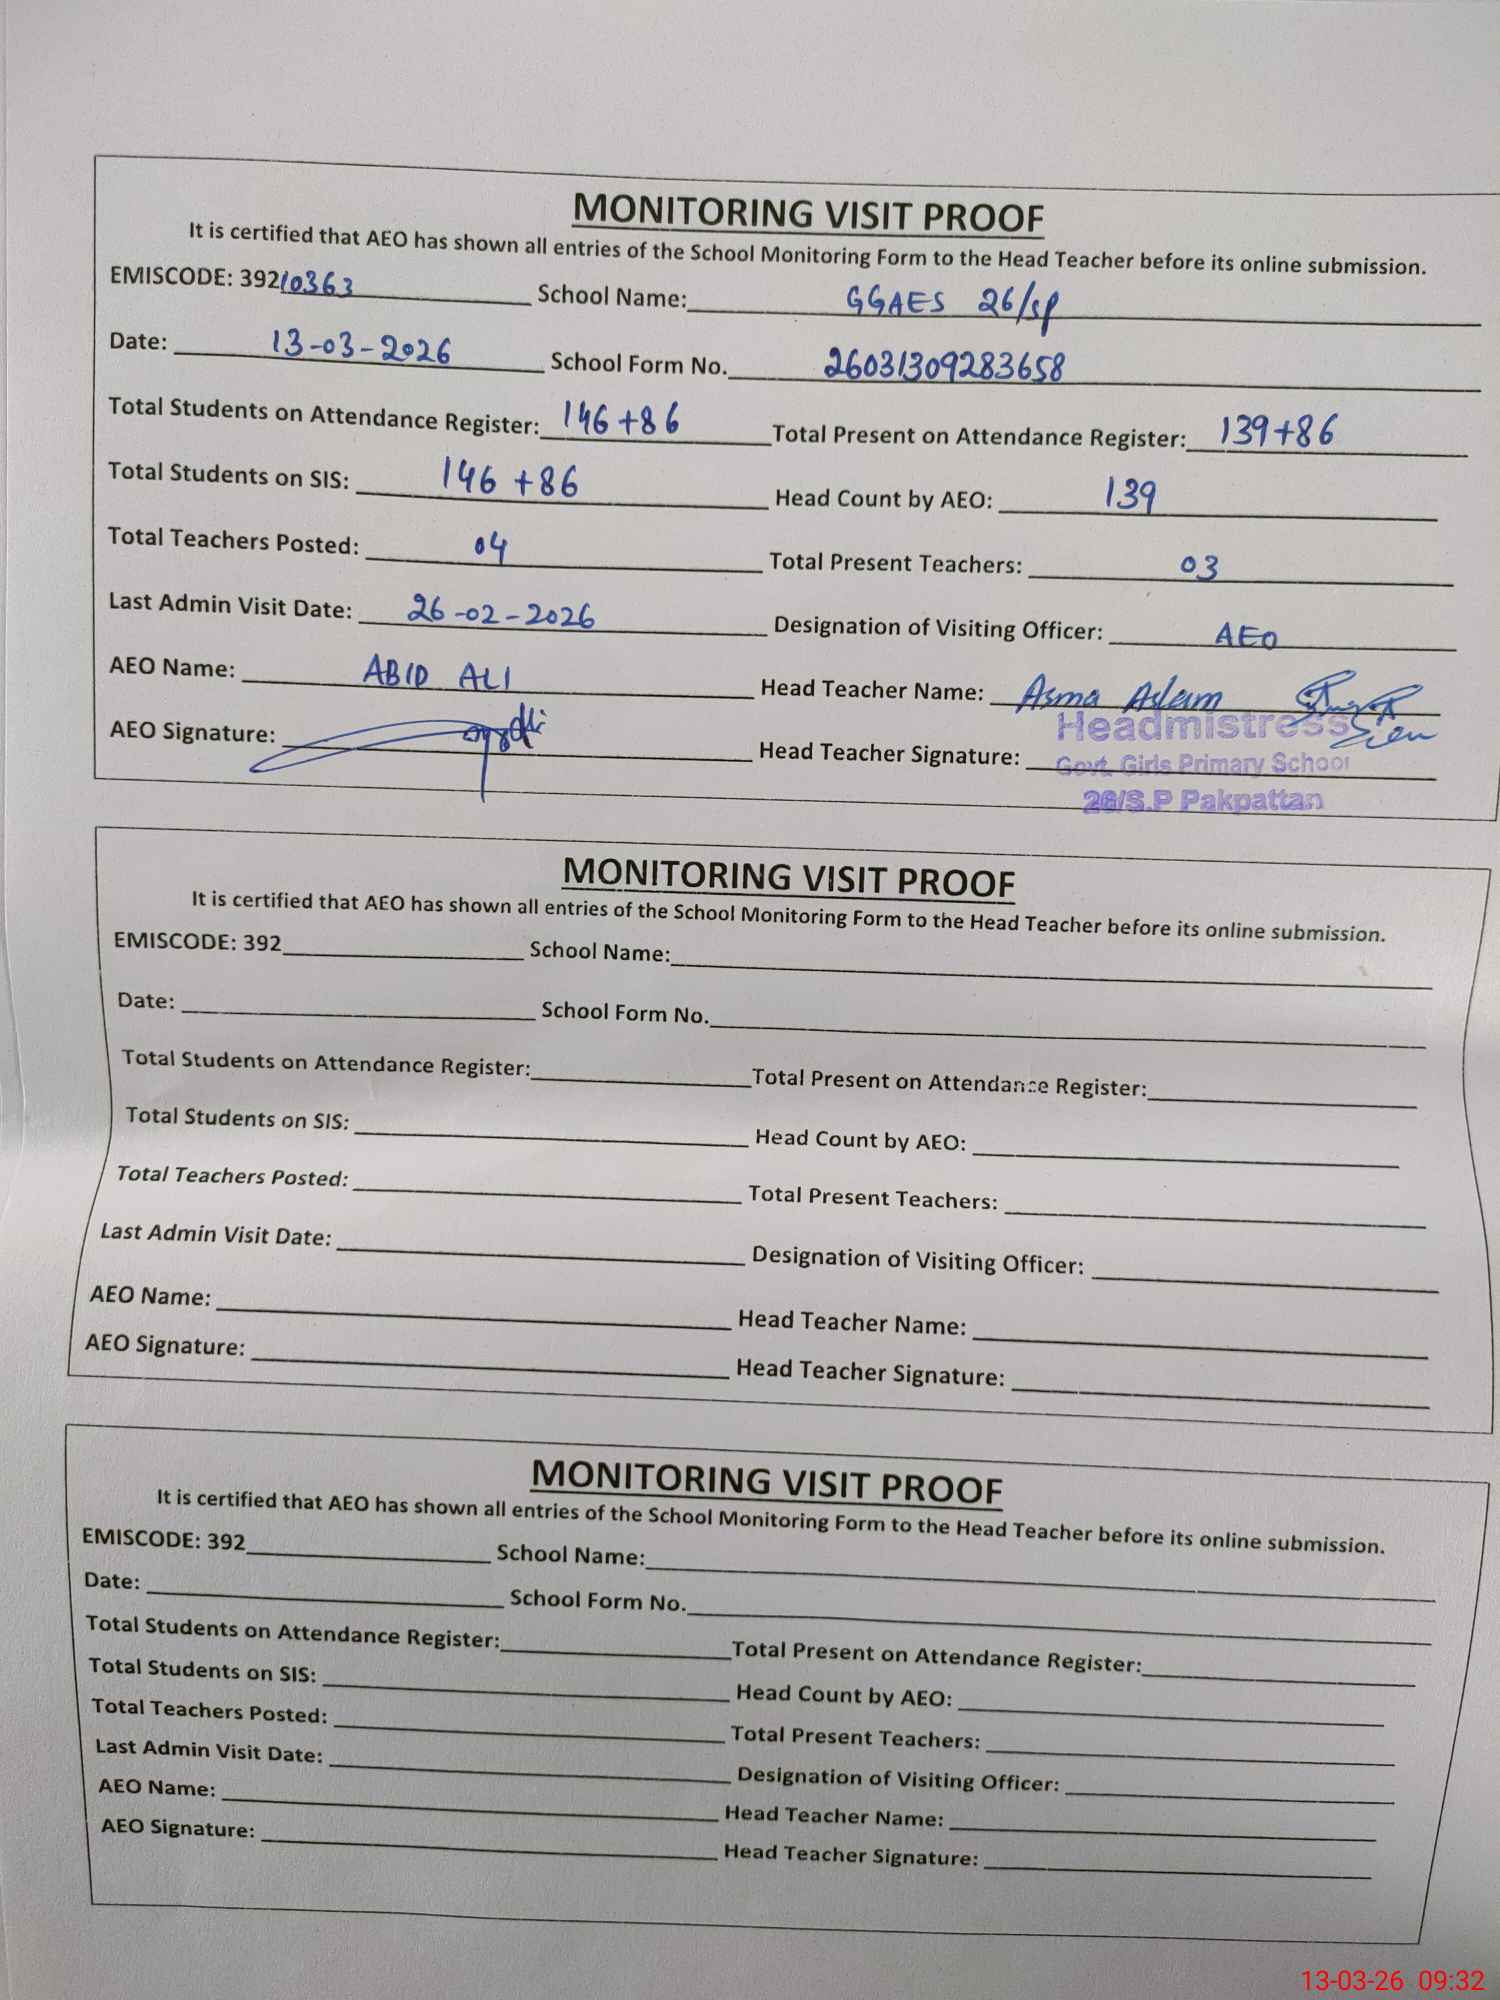 MONITORING VISIT PROOF
It is certified that AEO has shown all entries of the School Monitoring Form to the Head Teacher before its online submission.
EMISCODE: 39210363 School Name: GGAES 26/SP
Date: 13-03-2026 School Form No. 26031309283658
Total Students on Attendance Register: 146+86 Total Present on Attendance Register: 139+86
Total Students on SIS: 146+86 Head Count by AEO: 139
Total Teachers Posted: 04 Total Present Teachers: 03
Last Admin Visit Date: 26-02-2026 Designation of Visiting Officer: AEO
AEO Name: ABID ALI Head Teacher Name: Asma Aslam
AEO Signature: Head Teacher Signature:
Headmistress
Govt. Girls Primary School
26/S.P Pakpattan
MONITORING VISIT PROOF
It is certified that AEO has shown all entries of the School Monitoring Form to the Head Teacher before its online submission.
EMISCODE: 392 School Name:
Date: School Form No.
Total Students on Attendance Register: Total Present on Attendance Register:
Total Students on SIS: Head Count by AEO:
Total Teachers Posted: Total Present Teachers:
Last Admin Visit Date: Designation of Visiting Officer:
AEO Name: Head Teacher Name:
AEO Signature: Head Teacher Signature:
MONITORING VISIT PROOF
It is certified that AEO has shown all entries of the School Monitoring Form to the Head Teacher before its online submission.
EMISCODE: 392 School Name:
Date: School Form No.
Total Students on Attendance Register: Total Present on Attendance Register:
Total Students on SIS: Head Count by AEO:
Total Teachers Posted: Total Present Teachers:
Last Admin Visit Date: Designation of Visiting Officer:
AEO Name: Head Teacher Name:
AEO Signature: Head Teacher Signature:
13-03-26 09:32